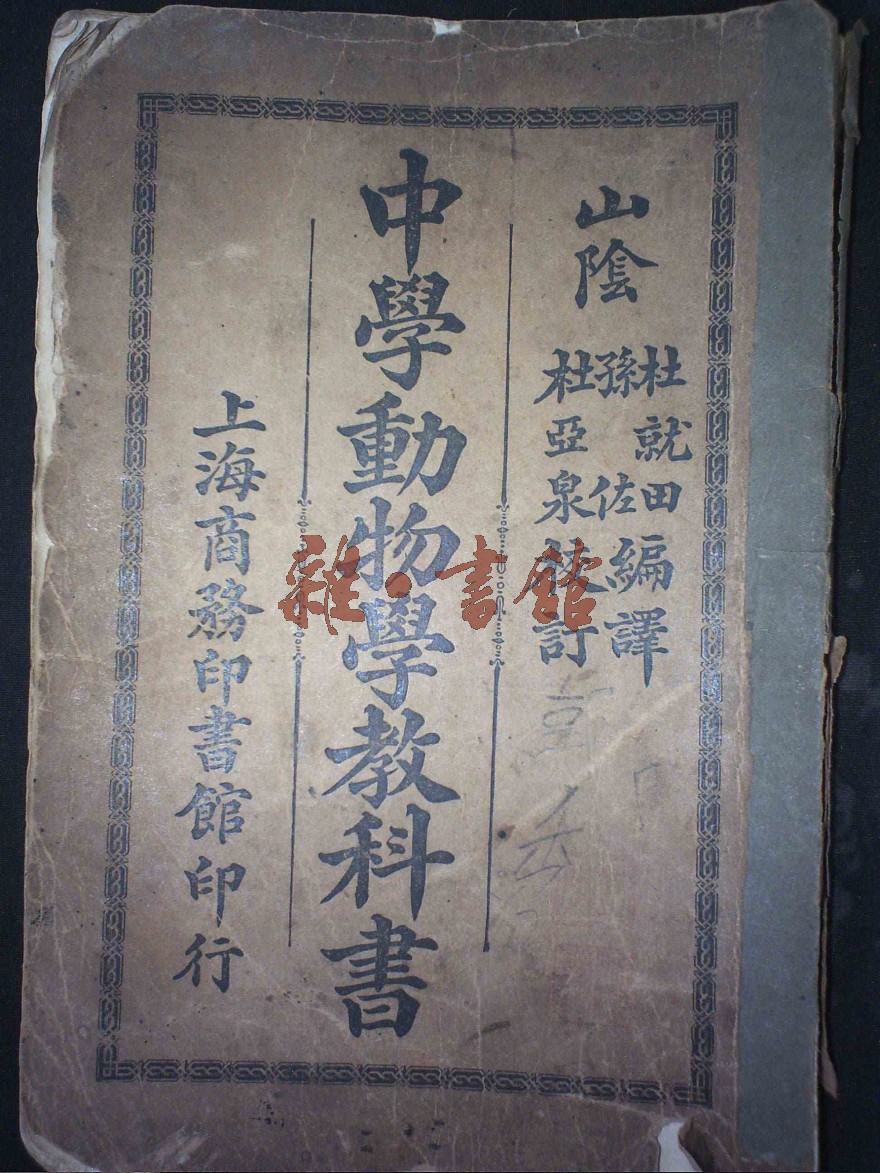 山陰
杜就田
孫佐
編譯
杜亞泉校訂
中學動物學教科書
上海商務印書館印行
雜·書館